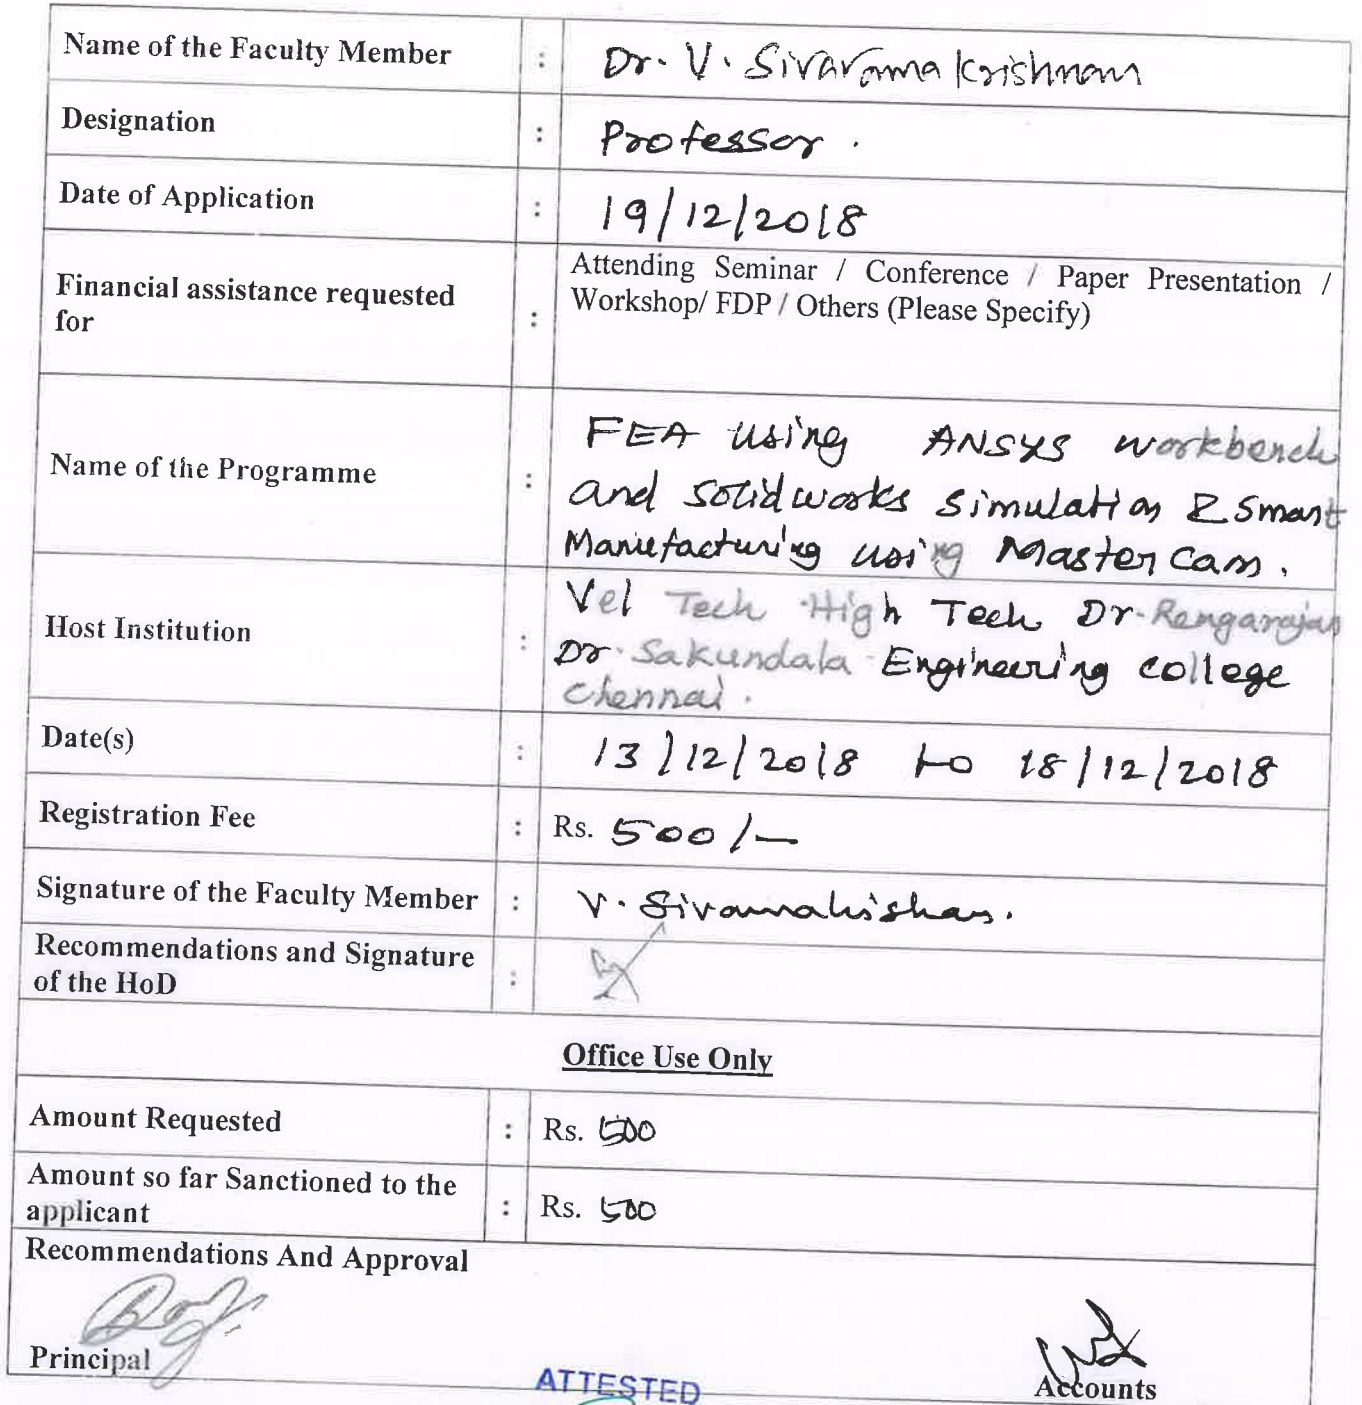 Name of the Faculty Member : Dr. V. Sivarama Krishnan
Designation : Professor.
Date of Application : 19/12/2018
Financial assistance requested
for
: Attending Seminar / Conference / Paper Presentation /
Workshop/ FDP / Others (Please Specify)
Name of the Programme : FEA using ANSYS workbench
and solidworks simulation & Smart
Manufacturing using Master cam.
Host Institution : Vel Tech High Tech Dr. Rengarajan
Dr. Sakundala Engineering college
Chennai.
Date(s) : 13/12/2018 to 18/12/2018
Registration Fee : Rs. 500/-
Signature of the Faculty Member : V. Sivaramakrishnan.
Recommendations and Signature
of the HoD :
Office Use Only
Amount Requested : Rs. 500
Amount so far Sanctioned to the
applicant : Rs. 500
Recommendations And Approval
Principal
Accounts
ATTESTED